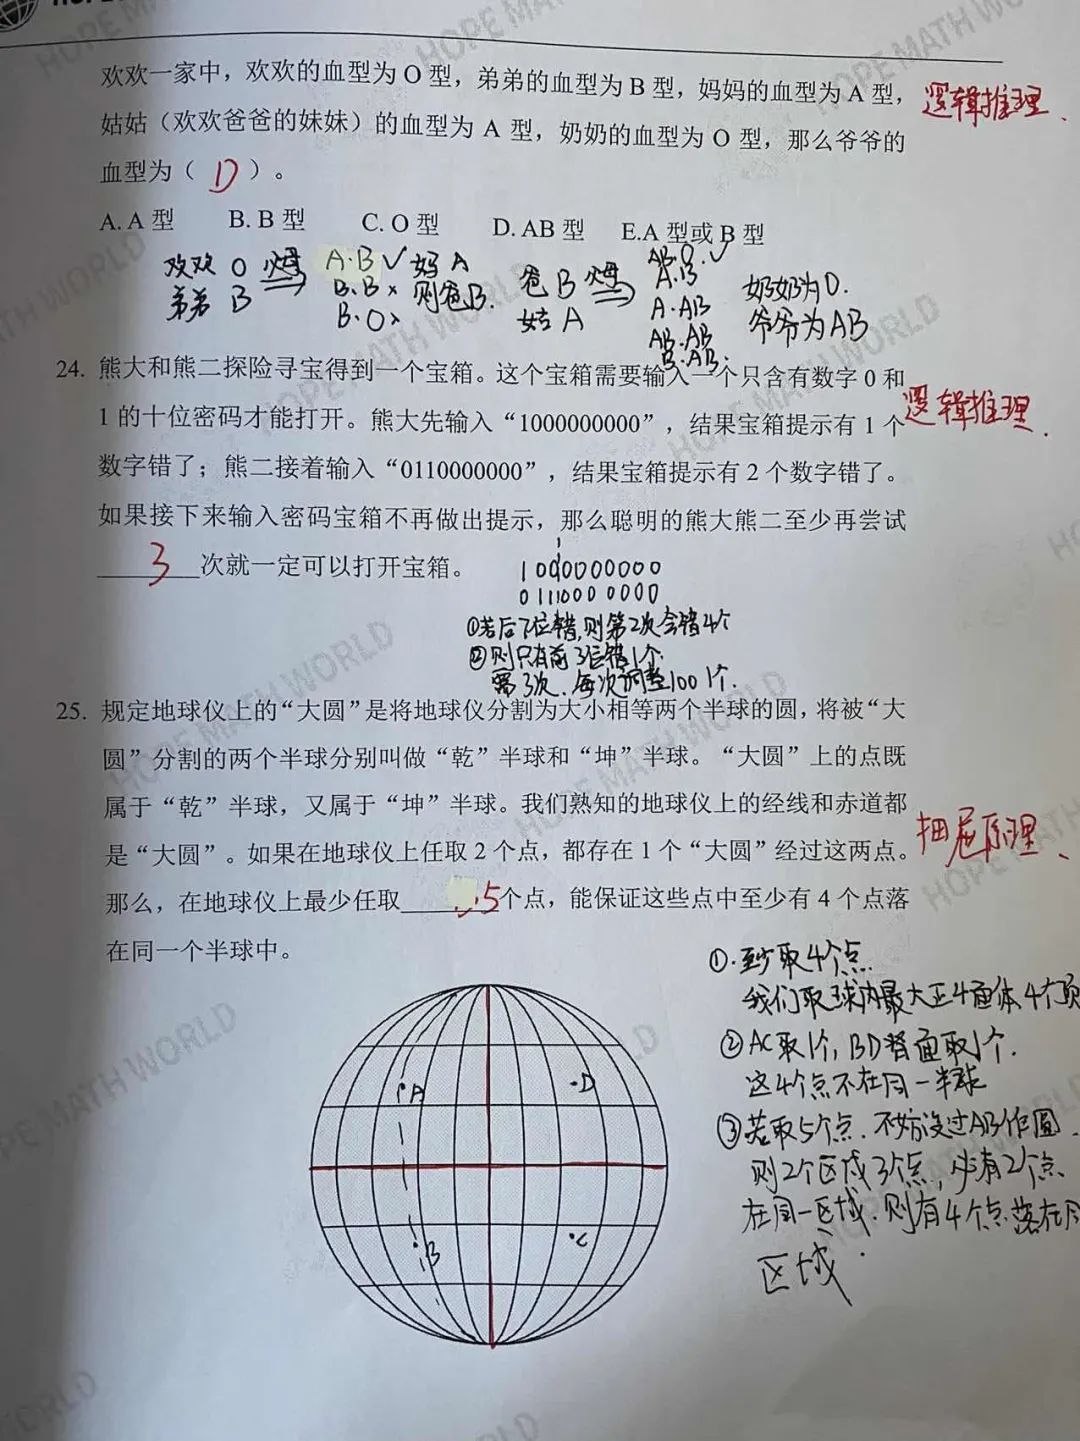 欢欢一家中，欢欢的血型为 O 型，弟弟的血型为 B 型，妈妈的血型为 A 型，
逻辑推理.
姑姑（欢欢爸爸的妹妹）的血型为 A 型，奶奶的血型为 O 型，那么爷爷的
血型为（ D ）。
A. A 型 B. B 型 C. O 型 D. AB 型 E.A 型或 B 型
欢欢 O
弟弟 B
A·B✓ 妈 A
B·B× 则爸B.
B·O×
爸 B
姑 A
AB·O.✓
A·B
A·AB
AB·AB
B·AB.
奶奶为O.
爷爷为AB
24. 熊大和熊二探险寻宝得到一个宝箱。这个宝箱需要输入一个只含有数字 0 和
逻辑推理.
1 的十位密码才能打开。熊大先输入“1000000000”，结果宝箱提示有 1 个
数字错了；熊二接着输入“0110000000”，结果宝箱提示有 2 个数字错了。
如果接下来输入密码宝箱不再做出提示，那么聪明的熊大熊二至少再尝试
3 次就一定可以打开宝箱。
①若后7位错,则第2次会错4个
②则只有前3位错1个.
需3次.每次调整100 1个.
25. 规定地球仪上的“大圆”是将地球仪分割为大小相等两个半球的圆，将被“大
圆”分割的两个半球分别叫做“乾”半球和“坤”半球。“大圆”上的点既
属于“乾”半球，又属于“坤”半球。我们熟知的地球仪上的经线和赤道都
抽屉原理、
是“大圆”。如果在地球仪上任取 2 个点，都存在 1 个“大圆”经过这两点。
那么，在地球仪上最少任取 5 个点，能保证这些点中至少有 4 个点落
在同一个半球中。
①.至少取4个点.
我们取球内最大正4面体4个顶
②AC取1个,BD背面取1个.
这4个点不在同一半球
③若取5个点.不妨设过AB作圆.
则2个区域3个点,必有2个点
在同一区域.则有4个点落在同
区域.
A
D
B
C
HOPE MATH WORLD